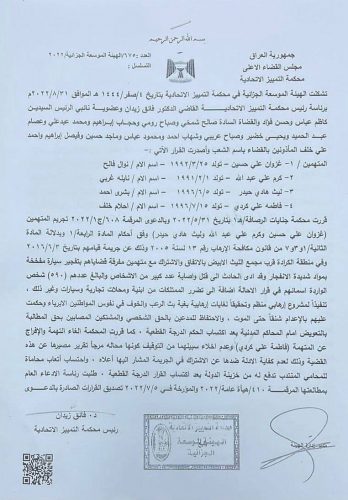 بسم الله الرحمن الرحيم
جمهورية العراق
مجلس القضاء الاعلى
محكمة التمييز الاتحادية
العدد : ٦٧٥/الهيئة الموسعة الجزائية/٢٠٢٢
التسلسل :
تشكلت الهيئة الموسعة الجزائية في محكمة التمييز الاتحادية بتاريخ ٤/صفر/١٤٤٤ هـ الموافق ٢٠٢٢/٨/٣١م
برئاسة رئيس محكمة التمييز الاتحادية القاضي الدكتور فائق زيدان وعضوية نائبي الرئيس السيدين
كاظم عباس وحسن فؤاد والقضاة السادة صالح شمخي وصباح رومي وحجاب إبراهيم ومحمد عبدعلي وعصام
عبد الحميد ويحيى خضير وصباح عريبي وشهاب احمد ومحمود عباس وماجد حسين وفيصل ابراهيم واحمد
علي خلف المأذونين بالقضاء باسم الشعب وأصدرت القرار الآتي :
المتهمين / ١ – غزوان علي حسين – تولد ١٩٩٢/٣/٢٥ – اسم الام / نوال فالح
٢ – كرم علي عبد الله – تولد ١٩٩١/٢/١ – اسم الام / نايله غربي
٣ – ليث هادي حيدر – تولد ١٩٩٦/٦/٥ – اسم الام / بشرى احمد
٤ – فاطمة علي كردي – تولد ١٩٩٥/٦/١٥ – اسم الام / احلام خلف
قررت محكمة جنايات الرصافة/ه١ بتاريخ ٢٠٢٢/٥/٣١ وبالدعوى المرقمة ٦٠٨/ج١/٢٠٢٢ تجريم المتهمين
(غزوان علي حسين وكرم علي عبد الله وليث هادي حيدر) وفق أحكام المادة الرابعة/١ وبدلالة المادة
الثانية/١و٣و٧ من قانون مكافحة الإرهاب رقم ١٣ لسنة ٢٠٠٥ وذلك عن جريمة قيامهم بتاريخ ٢٠١٦/٦/٣
وفي منطقة الكرادة قرب مجمع الليث الأبيض بالاتفاق والاشتراك مع متهمين مفرقة قضاياهم بتفجير سيارة مفخخة
بمواد شديدة الانفجار وقد ادى الحادث الى قتل واصابة عدد كبير من الاشخاص والبالغ عددهم (٥٩٠) شخص
الواردة اسمائهم في قرار الاحالة اضافة الى تضرر الممتلكات من ابنية ومحلات تجارية وسيارات وغير ذلك ،
تنفيذا لمشروع إرهابي منظم وتحقيقا بغايات إرهابية بغية بث الرعب والخوف في نفوس المواطنين الابرياء وحكمت
عليهم بالإعدام شنقاً حتى الموت ، والاحتفاظ للمدعين بالحق الشخصي والمشتكين المصابين بحق المطالبة
بالتعويض امام المحاكم المدنية بعد اكتساب الحكم الدرجة القطعية ، كما قررت المحكمة الغاء التهمة والإفراج
عن المتهمة (فاطمة علي كردي) وعدم اخلاء سبيلها من التوقيف كونها محاله مجرماً تقرير مصيرها عن هذه
القضية وذلك لعدم كفاية الادلة ضدها عن الاشتراك في الجريمة المشار اليها أعلاه ، واحتساب أتعاب محاماة
للمحامي المنتدب تدفع له من خزينة الدولة بعد اكتساب القرار الدرجة القطعية ، طلبت رئاسة الادعاء العام
بمطالعتها المرقمة ٤١٠/هيأة عامة/٢٠٢٢ والمؤرخة في ٢٠٢٢/٧/٥ تصديق القرارات الصادرة بالدعوى
د. فائق زيدان
رئيس محكمة التمييز الاتحادية
الهيئة الموسعة
الجزائية